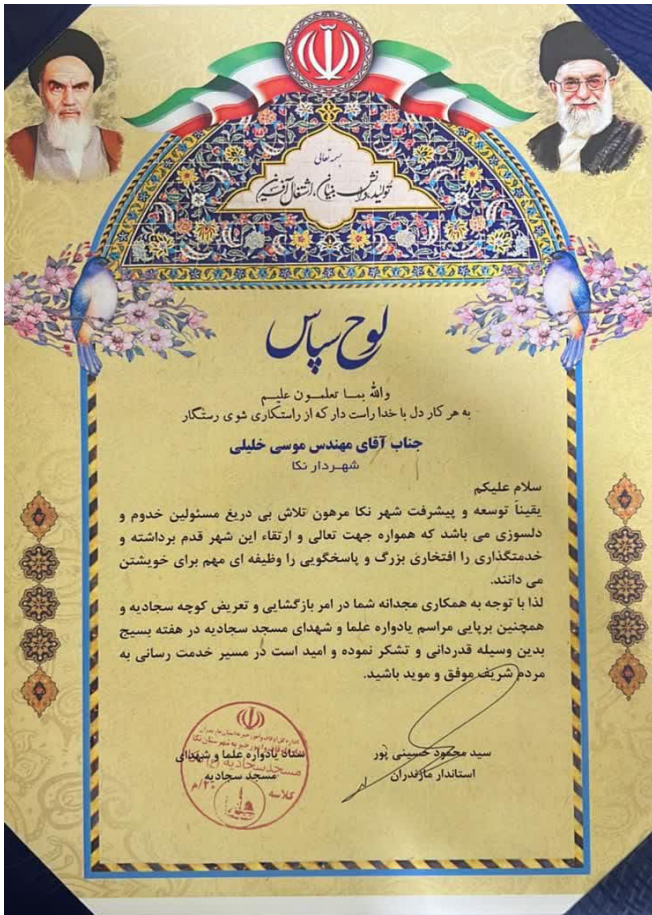 بسمه تعالی
تولید، دانش بنیان، اشتغال آفرین
لوح سپاس
والله بما تعلمون علیم
به هر کار دل با خدا راست دار که از راستکاری شوی رستگار
جناب آقای مهندس موسی خلیلی
شهردار نکا
سلام علیکم
یقیناً توسعه و پیشرفت شهر نکا مرهون تلاش بی دریغ مسئولین خدوم و
دلسوزی می باشد که همواره جهت تعالی و ارتقاء این شهر قدم برداشته و
خدمتگذاری را افتخاری بزرگ و پاسخگویی را وظیفه ای مهم برای خویشتن
می دانند.
لذا با توجه به همکاری مجدانه شما در امر بازگشایی و تعریض کوچه سجادیه و
همچنین برپایی مراسم یادواره علما و شهدای مسجد سجادیه در هفته بسیج
بدین وسیله قدردانی و تشکر نموده و امید است در مسیر خدمت رسانی به
مردم شریف موفق و موید باشید.
سید محمود حسینی پور
استاندار مازندران
ستاد یادواره علما و شهدای
مسجد سجادیه
مسجد سجادیه (ع)
کلاسه
۲۰/م